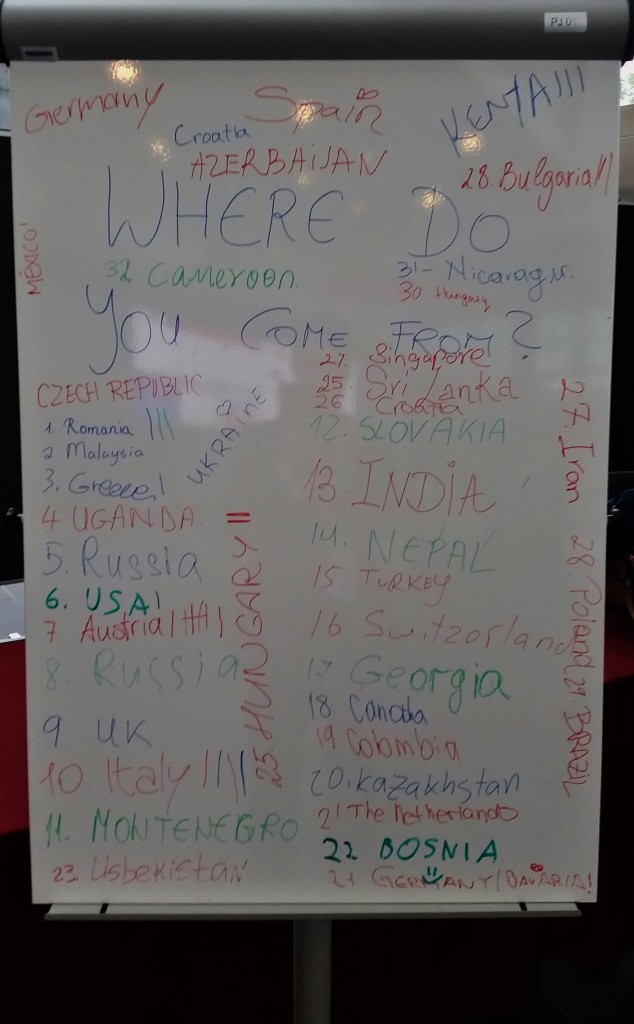 PJ 01
Germany
Spain
KENYA III
Croatia
AZERBAIJAN
28. Bulgaria II
WHERE DO
MÉXICO!
32 Cameroon.
31- Nicaragu
30 Hungary
YOU COME FROM?
27. Singapore
CZECH REPUBLIC
25. Sri Lanka
26 Croatia
1. Romania |||
UKRAINE
12. SLOVAKIA
2. Malaysia
3. Greece!
13 INDIA
27. Iran
4 UGANDA
14. NEPAL
5. Russia
15 TURKEY
6. USA!
7. Austria | |||| |
16 Switzorland
28. Poland
8. Russia
25. HUNGARY II
17 Georgia
29. BRAZIL
9 UK
18 Canada
19 Colombia
10 Italy ||||
20. Kazakhstan
11. MONTENEGRO
21 The Netherlands
22 BOSNIA
23 Usbekistan
21 GERMANY/BAVARIA!